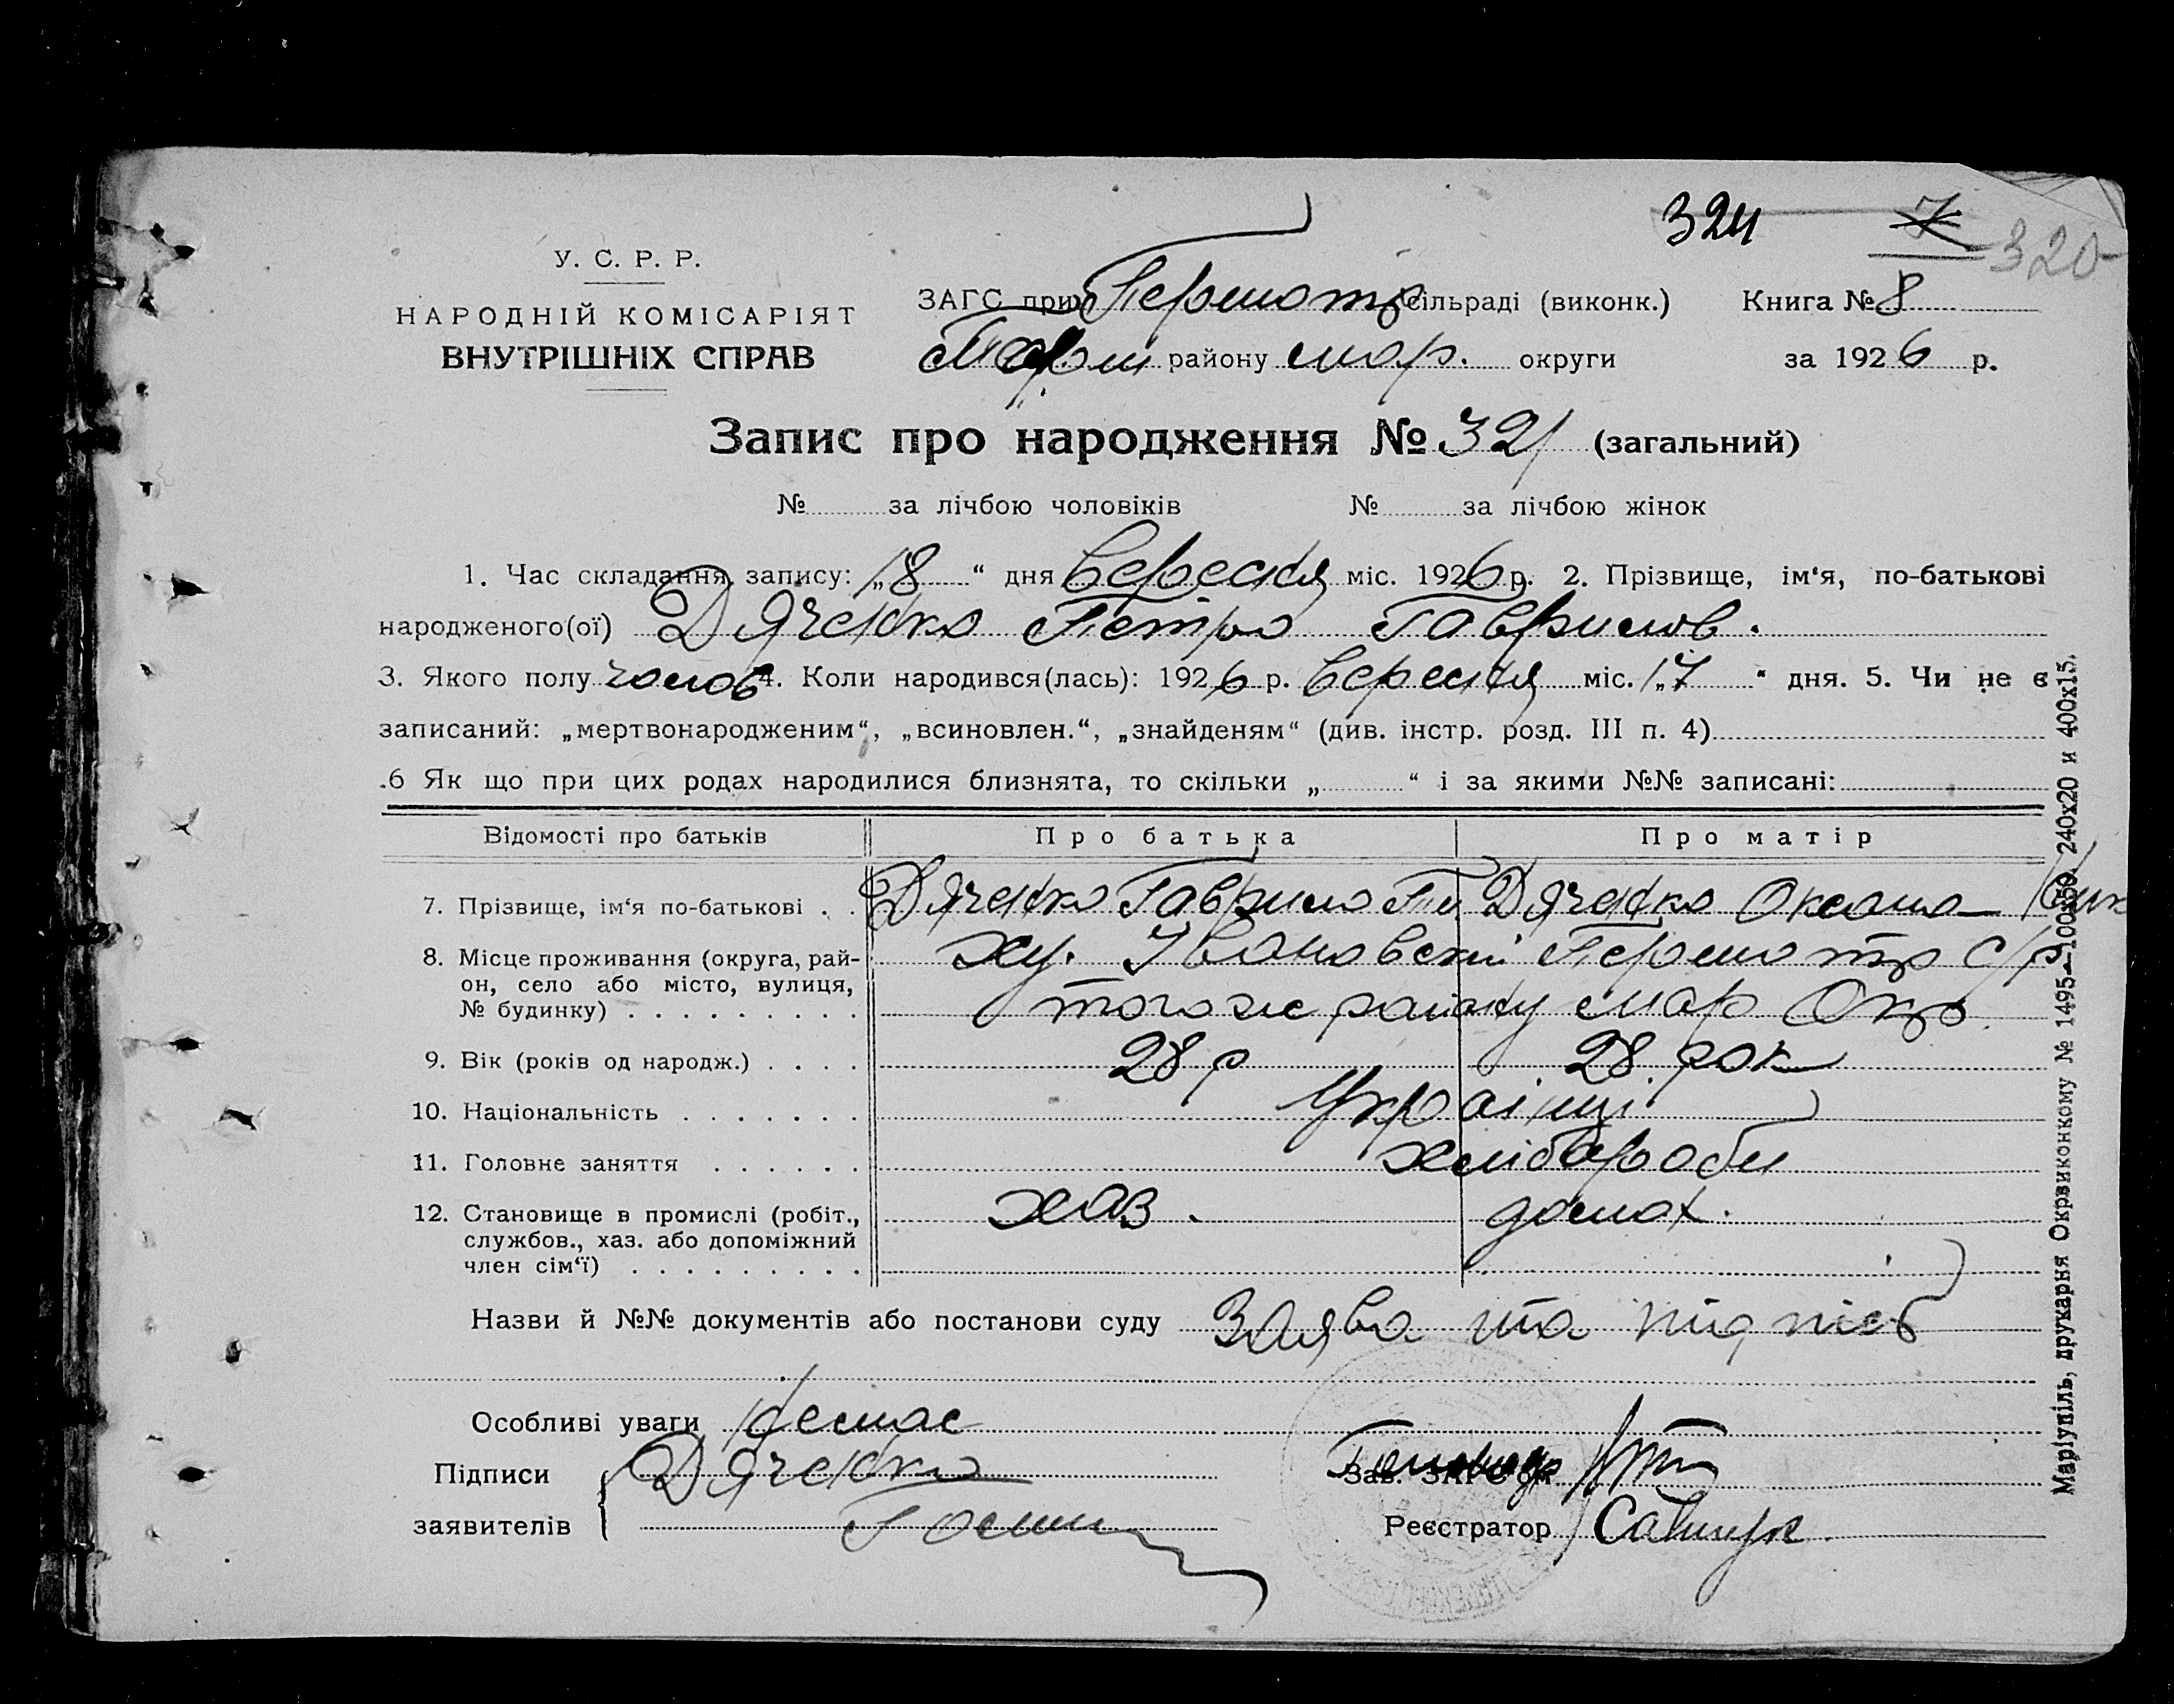 324 7 320
У. С. Р. Р.
НАРОДНІЙ КОМІСАРІЯТ
ВНУТРІШНІХ СПРАВ
ЗАГС при Першотр сільраді (виконк.) Книга № 8
району мар. округи за 1926 р.
Запис про народження № 321 (загальний)
№ за лічбою чоловіків № за лічбою жінок
1. Час складання запису: „18“ дня Вересня міс. 1926 р. 2. Прізвище, ім‘я, по-батькові
народженого(ої) Дяченко Петро Гаврилов.
3. Якого полу чолов 4. Коли народився(лась): 1926 р. Вересня міс. „17“ дня. 5. Чи не є
записаний: „мертвонародженим“, „всиновлен.“, „знайденям“ (див. інстр. розд. III п. 4)
.6 Як що при цих родах народилися близнята, то скільки „ “ і за якими №№ записані:
Відомості про батьків Про батька Про матір
7. Прізвище, ім‘я по-батькові . . Дяченко Гаврило Пи Дяченко Оксана
8. Місце проживання (округа, рай-
он, село або місто, вулиця,
№ будинку) . . . . . . . . .
ху. Івановский Першотр С/р
того же району мар Окр.
9. Вік (років од народж.) . . . . 28 р 28 рок
10. Національність . . . . . . . Українці
11. Головне заняття . . . . . . хлібароби
12. Становище в промислі (робіт.,
службов., хаз. або допоміжний
член сім‘ї) . . . . . . . . .
хаз. домах.
Назви й №№ документів або постанови суду Заява та підпісь
Особливі уваги Немає
Підписи Дяченко
заявителів
Зав. ЗАГС‘ом
Реєстратор Савчук
Маріупіль, друкарня Окрвиконкому № 1495—100х50. 240х20 и 400х15.